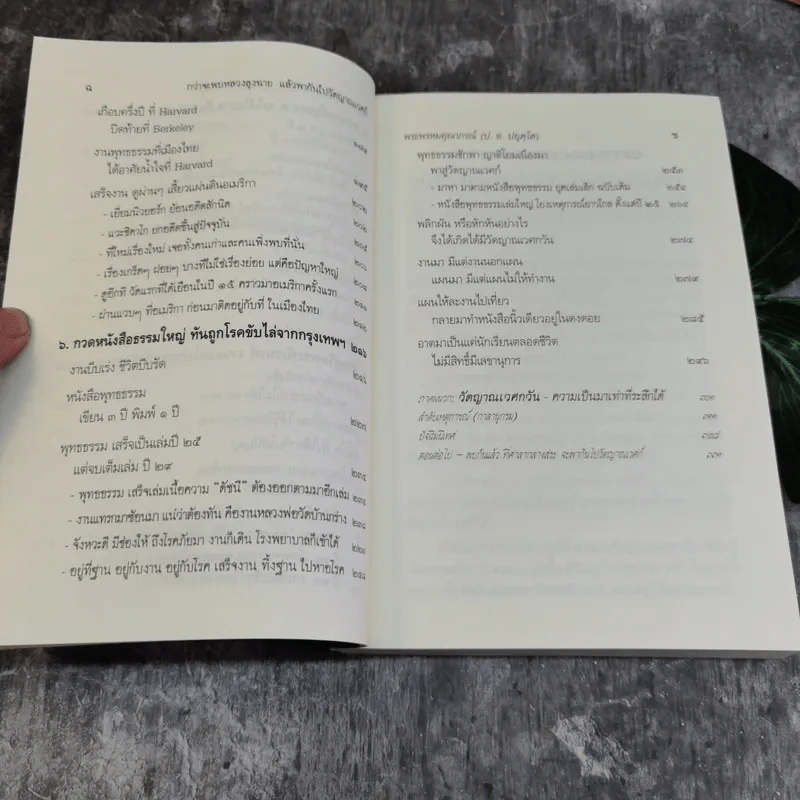 ฉ กว่าจะพบหลวงลุงฉาย แล้วพากันไปวัดญาณเวศก์
เกือบครึ่งปี ที่ Harvard
ปิดท้ายที่ Berkeley
งานพุทธธรรมที่เมืองไทย
ได้อาศัยน้ำใจที่ Harvard
เสร็จงาน ดูผ่านๆ เสี้ยวแผ่นดินอเมริกา
- เยี่ยมนิวยอร์ก ย้อนอดีตสักนิด
- แวะชิคาโก ยกอดีตขึ้นสู่ปัจจุบัน
- ที่ใหม่เรื่องใหม่ เจอทั้งคนเก่าและคนเพิ่งพบที่นั่น
- เรื่องเกร็ดๆ ฝอยๆ บางทีไม่ใช่เรื่องย่อย แต่คือปัญหาใหญ่
- ดูอีกที วัดแรกที่ได้เยือนในปี ๑๕ คราวมาอเมริกาครั้งแรก
- ผ่านแวบๆ ที่อเมริกา ก่อนมาติดอยู่กับที่ ในเมืองไทย
๖. กวดหนังสือธรรมใหญ่ ทันถูกโรคขับไล่จากกรุงเทพฯ ๒๑๖
งานบีบเร่ง ชีวิตบีบรัด ๒๑๖
หนังสือพุทธธรรม
เขียน ๓ ปี พิมพ์ ๑ ปี ๒๒๗
พุทธธรรม เสร็จเป็นเล่มปี ๒๕
แต่จบเต็มเล่ม ปี ๒๙
- พุทธธรรม เสร็จเล่มเนื้อความ "ดัชนี" ต้องออกตามมาอีกเล่ม
- งานแทรกมาซ้อนมา แน่ว่าต้องทัน คืองานหลวงพ่อวัดบ้านกร่าง
- จังหวะดี มีช่องให้ ถึงโรคภัยมา งานก็เดิน โรงพยาบาลก็เข้าได้
- อยู่ที่ฐาน อยู่กับงาน อยู่กับโรค เสร็จงาน ทิ้งฐาน ไปหาอโรค
พระพรหมคุณาภรณ์ (ป. อ. ปยุตฺโต) ช
พุทธธรรมชักพา ญาติโยมเนื่องมา
พาสู่วัดญาณเวศก์ ๒๕๓
- มาหา มาตามหนังสือพุทธธรรม ยุคเล่มเล็ก ฉบับเดิม ๒๕๔
- หนังสือพุทธธรรมเล่มใหญ่ โยงเหตุการณ์ยาวไกล ตั้งแต่ปี ๒๕ ๒๖๔
พลิกผัน หรือหักหันอย่างไร
จึงได้เกิดได้มีวัดญาณเวศกวัน ๒๗๔
งานมา มีแต่งานนอกแผน
แผนมา มีแต่แผนไม่ให้ทำงาน ๒๗๙
แผนให้ละงานไปเที่ยว
กลายมาทำหนังสือนิ้วเดียวอยู่ในดงดอย ๒๘๕
อาตมาเป็นแต่นักเรียนตลอดชีวิต
ไม่มีสิทธิ์มีเลขานุการ ๒๙๖
ภาคผนวก: วัดญาณเวศกวัน - ความเป็นมาเท่าที่ระลึกได้
ลำดับเหตุการณ์ (กาลานุกรม)
ปัจฉิมนิเทศ
ตอนต่อไป – พบกันแล้ว ที่ศาลากลางสระ จะพากันไปวัดญาณเวศก์